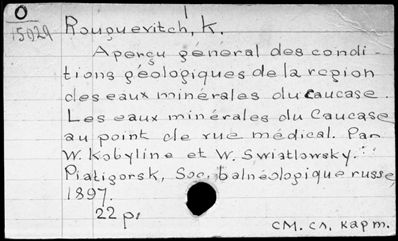 O
15029
Rouguevitch, K.
Aperçu général des condi-
tions géologiques de la region
des eaux minérales du Caucase.
Les eaux minérales du Caucase
au point de rue médical. Par
W. Kobyline et W. Swiatlowsky.
Piatigorsk, Soc. balnéologique russe,
1897.
22 p.
см. сл. карт.